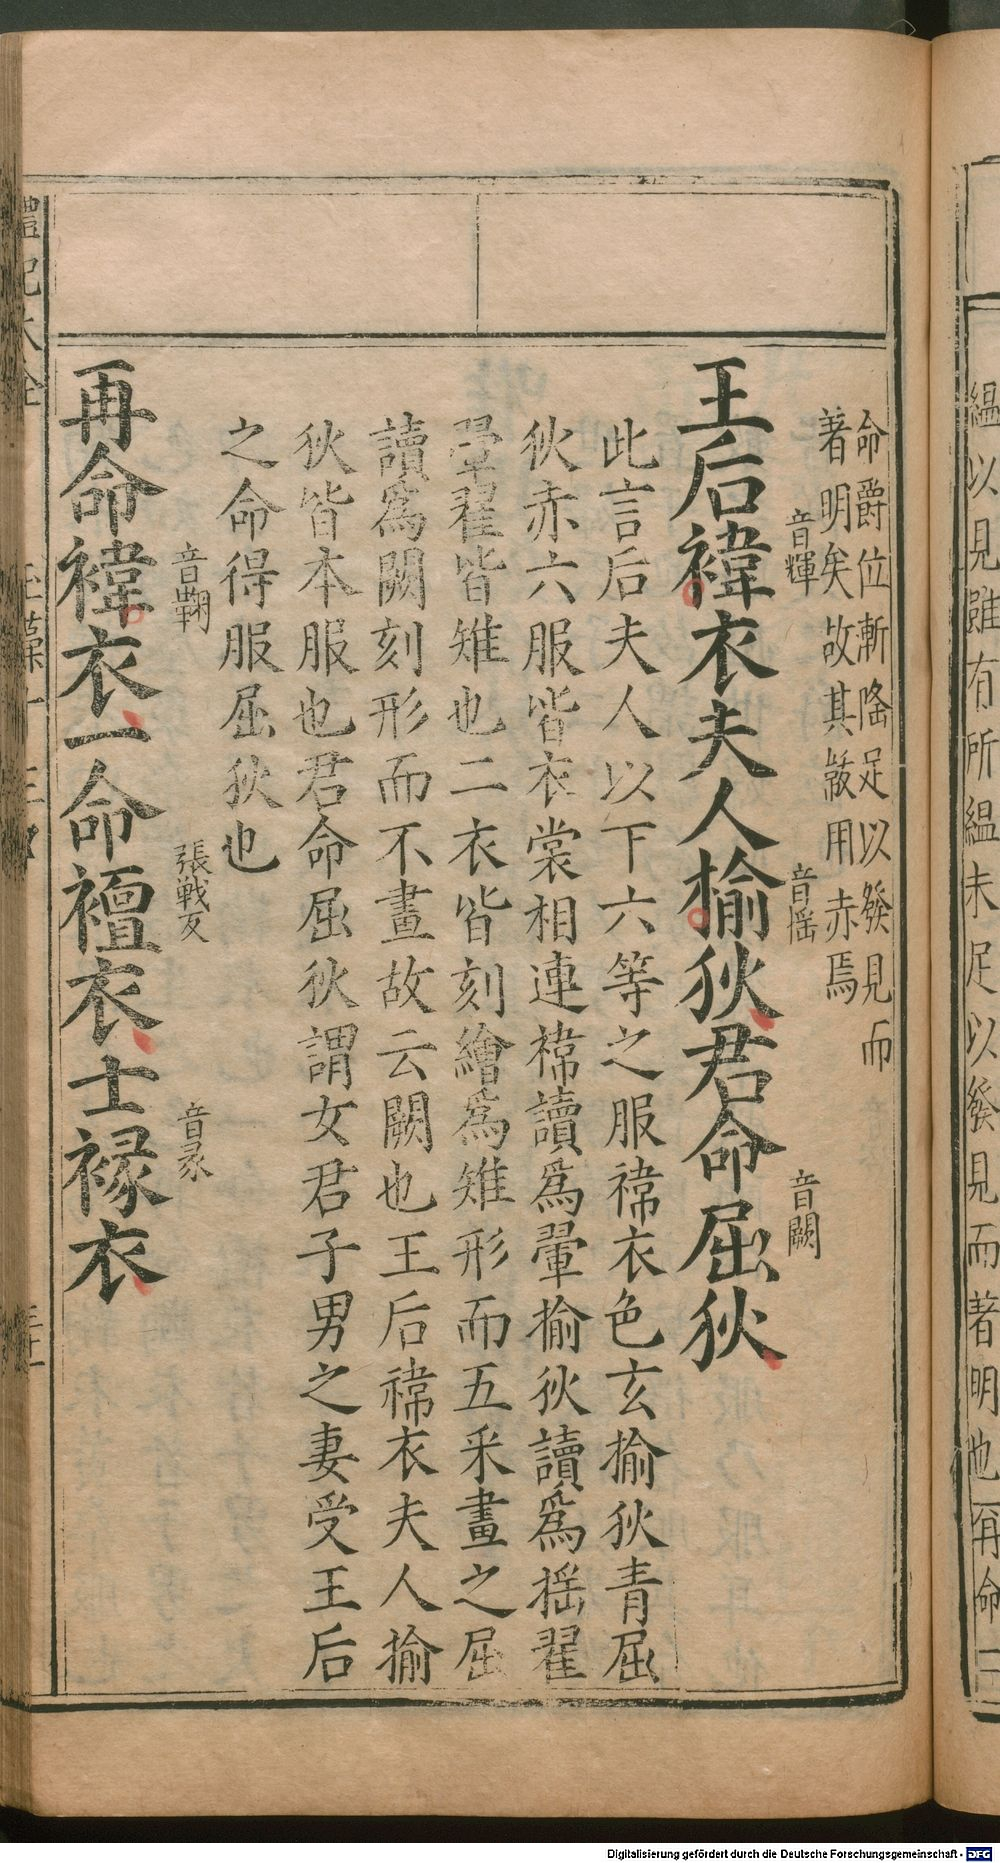 緼以見雖有所緼未足以發見而著明也再命
命爵位漸隆足以發見而
著明矣故其韍用赤焉
王后褘衣夫人揄狄君命屈狄
音輝
音搖
音闕
此言后夫人以下六等之服褘衣色玄揄狄青屈
狄赤六服皆衣裳相連褘讀爲翬揄狄讀爲搖翟
翬翟皆雉也二衣皆刻繒爲雉形而五采畫之屈
讀爲闕刻形而不畫故云闕也王后褘衣夫人揄
狄皆本服也君命屈狄謂女君子男之妻受王后
之命得服屈狄也
再命褘衣一命襢衣士褖衣
音鞠
張戰反
音彖
禮記大全
玉藻十三
三十一
Digitalisierung gefördert durch die Deutsche Forschungsgemeinschaft - DFG